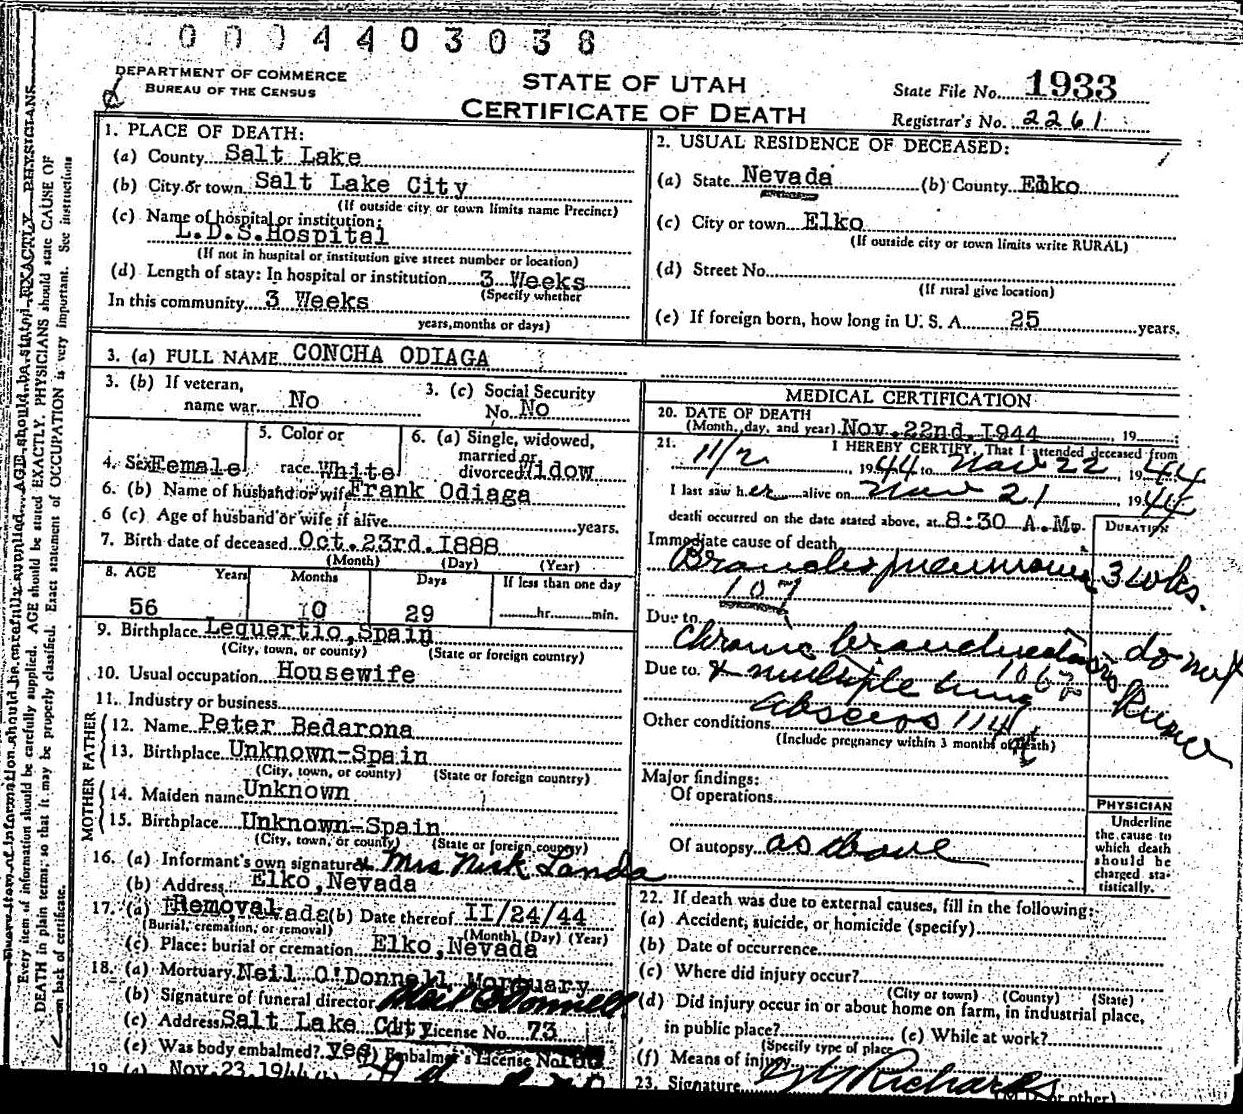 0004403038
DEPARTMENT OF COMMERCE
BUREAU OF THE CENSUS
STATE OF UTAH
CERTIFICATE OF DEATH
State File No. 1933
Registrar's No. 2261
1. PLACE OF DEATH:
(a) County Salt Lake
(b) City or town Salt Lake City
(If outside city or town limits name Precinct)
(c) Name of hospital or institution:
L.D.S.Hospital
(If not in hospital or institution give street number or location)
(d) Length of stay: In hospital or institution 3 Weeks
(Specify whether
In this community 3 Weeks
years, months or days)
2. USUAL RESIDENCE OF DECEASED:
(a) State Nevada (b) County Elko
(c) City or town Elko
(If outside city or town limits write RURAL)
(d) Street No.
(If rural give location)
(e) If foreign born, how long in U. S. A. 25 years.
3. (a) FULL NAME CONCHA ODIAGA
3. (b) If veteran,
name war No
3. (c) Social Security
No. No
4. Sex Female
5. Color or
race White
6. (a) Single, widowed,
married or
divorced Widow
6. (b) Name of husband or wife Frank Odiaga
6 (c) Age of husband or wife if alive years.
7. Birth date of deceased Oct.23rd.1888
(Month) (Day) (Year)
8. AGE Years Months Days If less than one day
56 0 29 hr. min.
9. Birthplace Lequertio,Spain
(City, town, or county) (State or foreign country)
10. Usual occupation Housewife
11. Industry or business
FATHER
12. Name Peter Bedarona
13. Birthplace Unknown-Spain
(City, town, or county) (State or foreign country)
MOTHER
14. Maiden name Unknown
15. Birthplace Unknown-Spain
(City, town, or county) (State or foreign country)
16. (a) Informant's own signature Mrs Nick Landa
(b) Address Elko,Nevada
17. (a) Removal (b) Date thereof II/24/44
(Burial, cremation, or removal) (Month) (Day) (Year)
(c) Place: burial or cremation Elko,Nevada
18. (a) Mortuary Neil O'Donnell Mortuary
(b) Signature of funeral director Neil O'Donnell
(c) Address Salt Lake City License No. 73
(e) Was body embalmed? yes (f) Embalmer's License No.
19. (a) Nov.23.1944 (b)
MEDICAL CERTIFICATION
20. DATE OF DEATH
(Month, day, and year) Nov.22nd.1944 19
21. I HEREBY CERTIFY, That I attended deceased from
11/2 1944 to Nov 22, 1944
I last saw her alive on Nov 21 1944
death occurred on the date stated above, at 8:30 A.M.
DURATION
Immediate cause of death
Bronchopneumonia 3 wks.
107
Due to
Chronic bronchiectasis do not know
Due to & multiple lung 106
abscess 114
Other conditions
(Include pregnancy within 3 months of death)
Major findings:
Of operations
Of autopsy as above
PHYSICIAN
Underline
the cause to
which death
should be
charged sta-
tistically.
22. If death was due to external causes, fill in the following:
(a) Accident, suicide, or homicide (specify)
(b) Date of occurrence
(c) Where did injury occur?
(City or town) (County) (State)
(d) Did injury occur in or about home on farm, in industrial place,
in public place? (e) While at work?
(Specify type of place)
(f) Means of injury
23. Signature Richards
(M.D. or other)
Every item of information should be carefully supplied. AGE should be stated EXACTLY. PHYSICIANS should state CAUSE OF
DEATH in plain terms; so that it may be properly classified. Exact statement of OCCUPATION is very important. See instructions
on back of certificate.